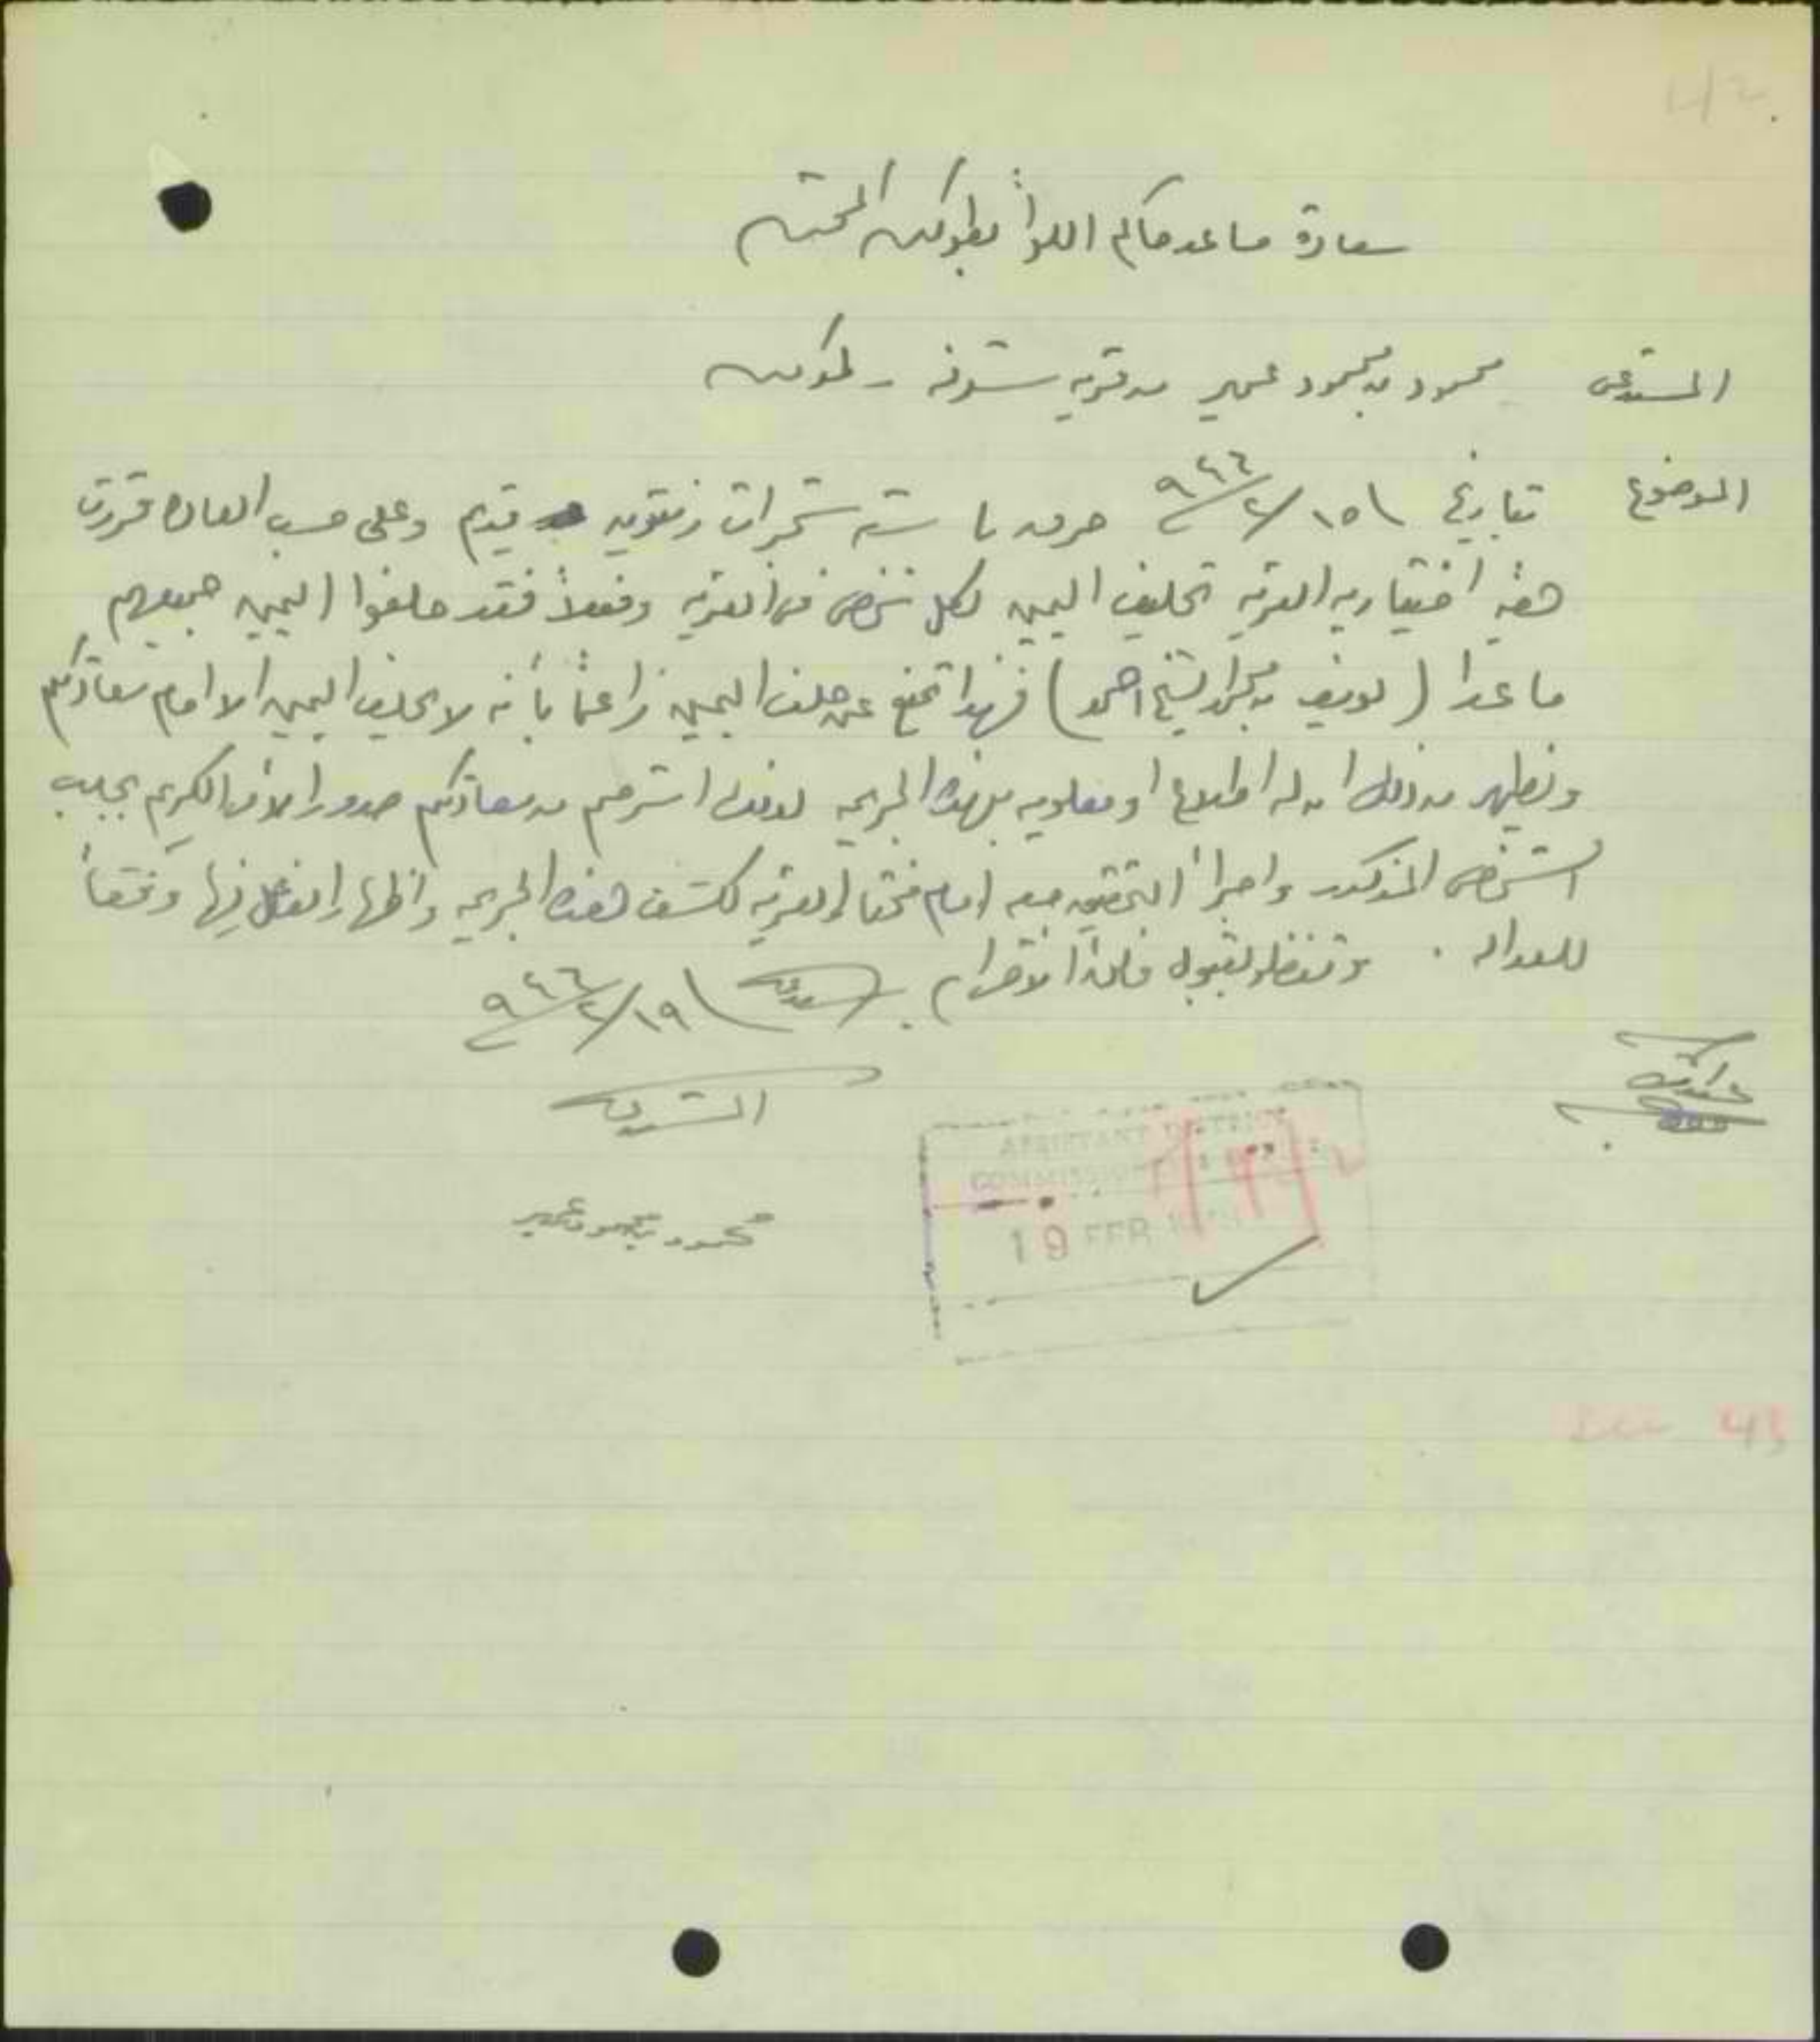 42.
سعادة مساعد حاكم اللواء بطولكرم المحترم
المستدعي محمود بن محمود عمير من قرية شوفه - طولكرم
الموضوع بتاريخ ١٥/٢/٩٤٦ حرق لنا ستة شجرات زيتون قديم وعلى حسب العاده قررت
هيئة اختيارية القريه تحليف اليمين لكل شخص في القريه وفعلاً فقد حلفوا اليمين جميعهم
ما عدا ( الشيخ احمد ) فهذا تمنع عن حلف اليمين زاعماً بأنه لا يحلف اليمين الا امام سعادتكم
ويظهر من ذلك ان له اطلاع او معلوميه بهذه الجريمه لذلك استرحم من سعادتكم صدور الأمر الكريم بجلب
الشخص المذكور واجراء التحقيق معه امام مختار القريه لكشف هذه الجريمه واظهار الفاعل فيها وفقاً
للعداله . وتفضلوا بقبول فائق الاحترام . سيدي ١٩/٢/٩٤٦
المستدعي
محمود بن محمود عمير
ASSISTANT DISTRICT
COMMISSIONER'S
19 FEB
43